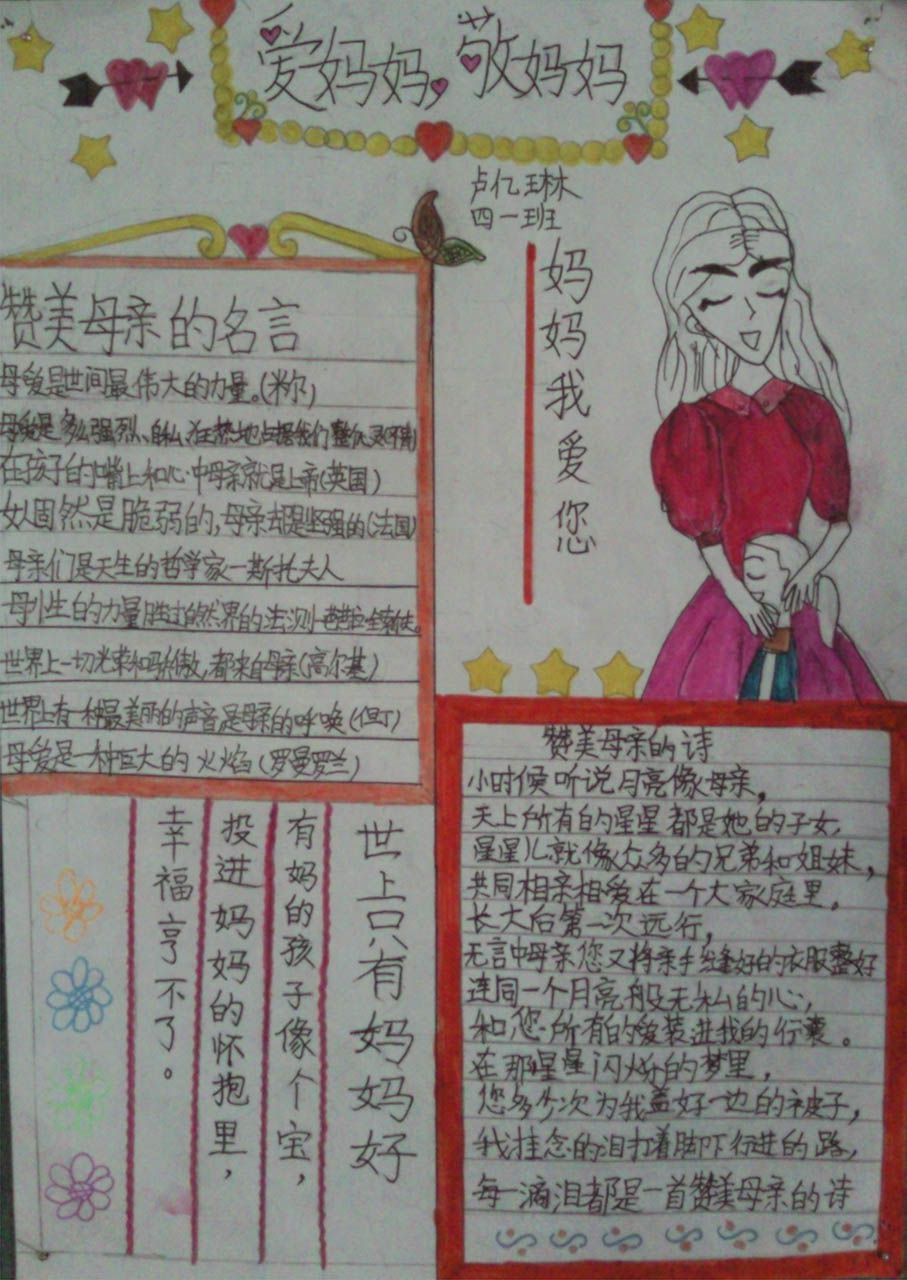 爱妈妈,敬妈妈
卢亿琳
四一班
妈妈我爱您
赞美母亲的名言
母爱是世间最伟大的力量。(米尔)
母爱是多么强烈、自私、狂热地占据我们整个心灵
在孩子的嘴上和心中母亲就是上帝(英国)
女人固然是脆弱的,母亲却是坚强的(法国)
母亲们是天生的哲学家—斯托夫人
母性的力量胜过自然界的法则—芭芭拉·金索夫
世界上一切光荣和骄傲,都来自母亲(高尔基)
世界上有一种最美丽的声音是母亲的呼唤(但丁)
母爱是一种巨大的火焰(罗曼罗兰)
世上只有妈妈好
有妈的孩子像个宝,
投进妈妈的怀抱里,
幸福享不了。
赞美母亲的诗
小时候听说月亮像母亲,
天上所有的星星都是她的子女,
星星儿就像众多的兄弟和姐妹,
共同相亲相爱在一个大家庭里。
长大后第一次远行,
无言中母亲您又将亲手缝好的衣服整好
连同一个月亮般无私的心,
和您所有的爱装进我的行囊。
在那星星闪烁的梦里,
您多少次为我盖好一边的被子,
我挂念的泪打着脚下行进的路,
每一滴泪都是一首赞美母亲的诗